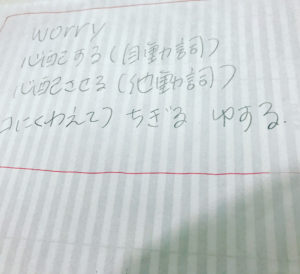 worry
心配する(自動詞)
心配させる(他動詞)
口にくわえて)ちぎる ゆする.